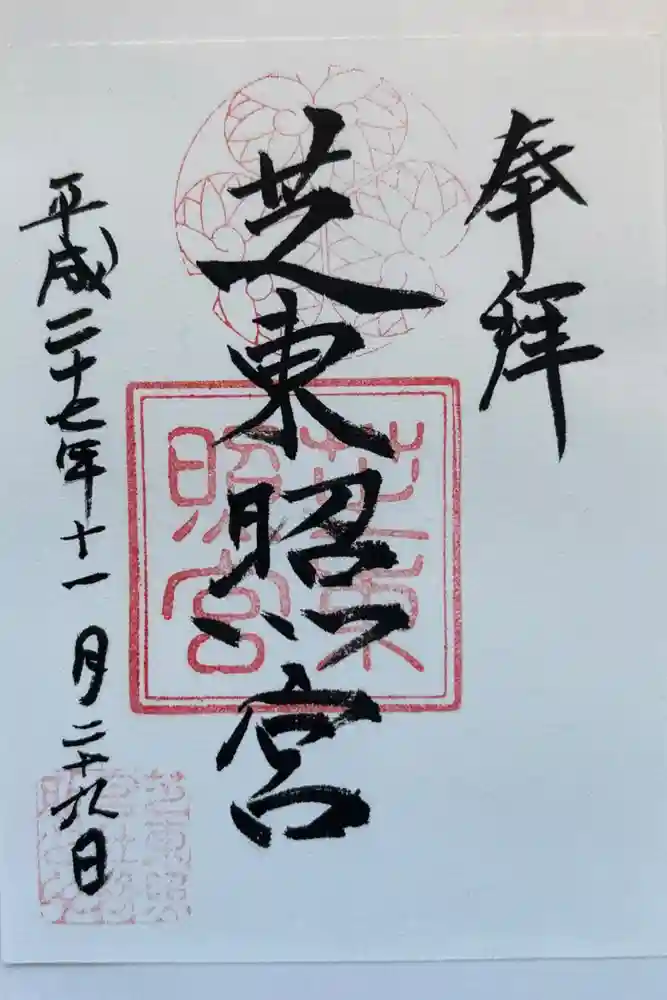 奉拝
芝東照宮
芝東照宮
平成二十七年十一月二十九日